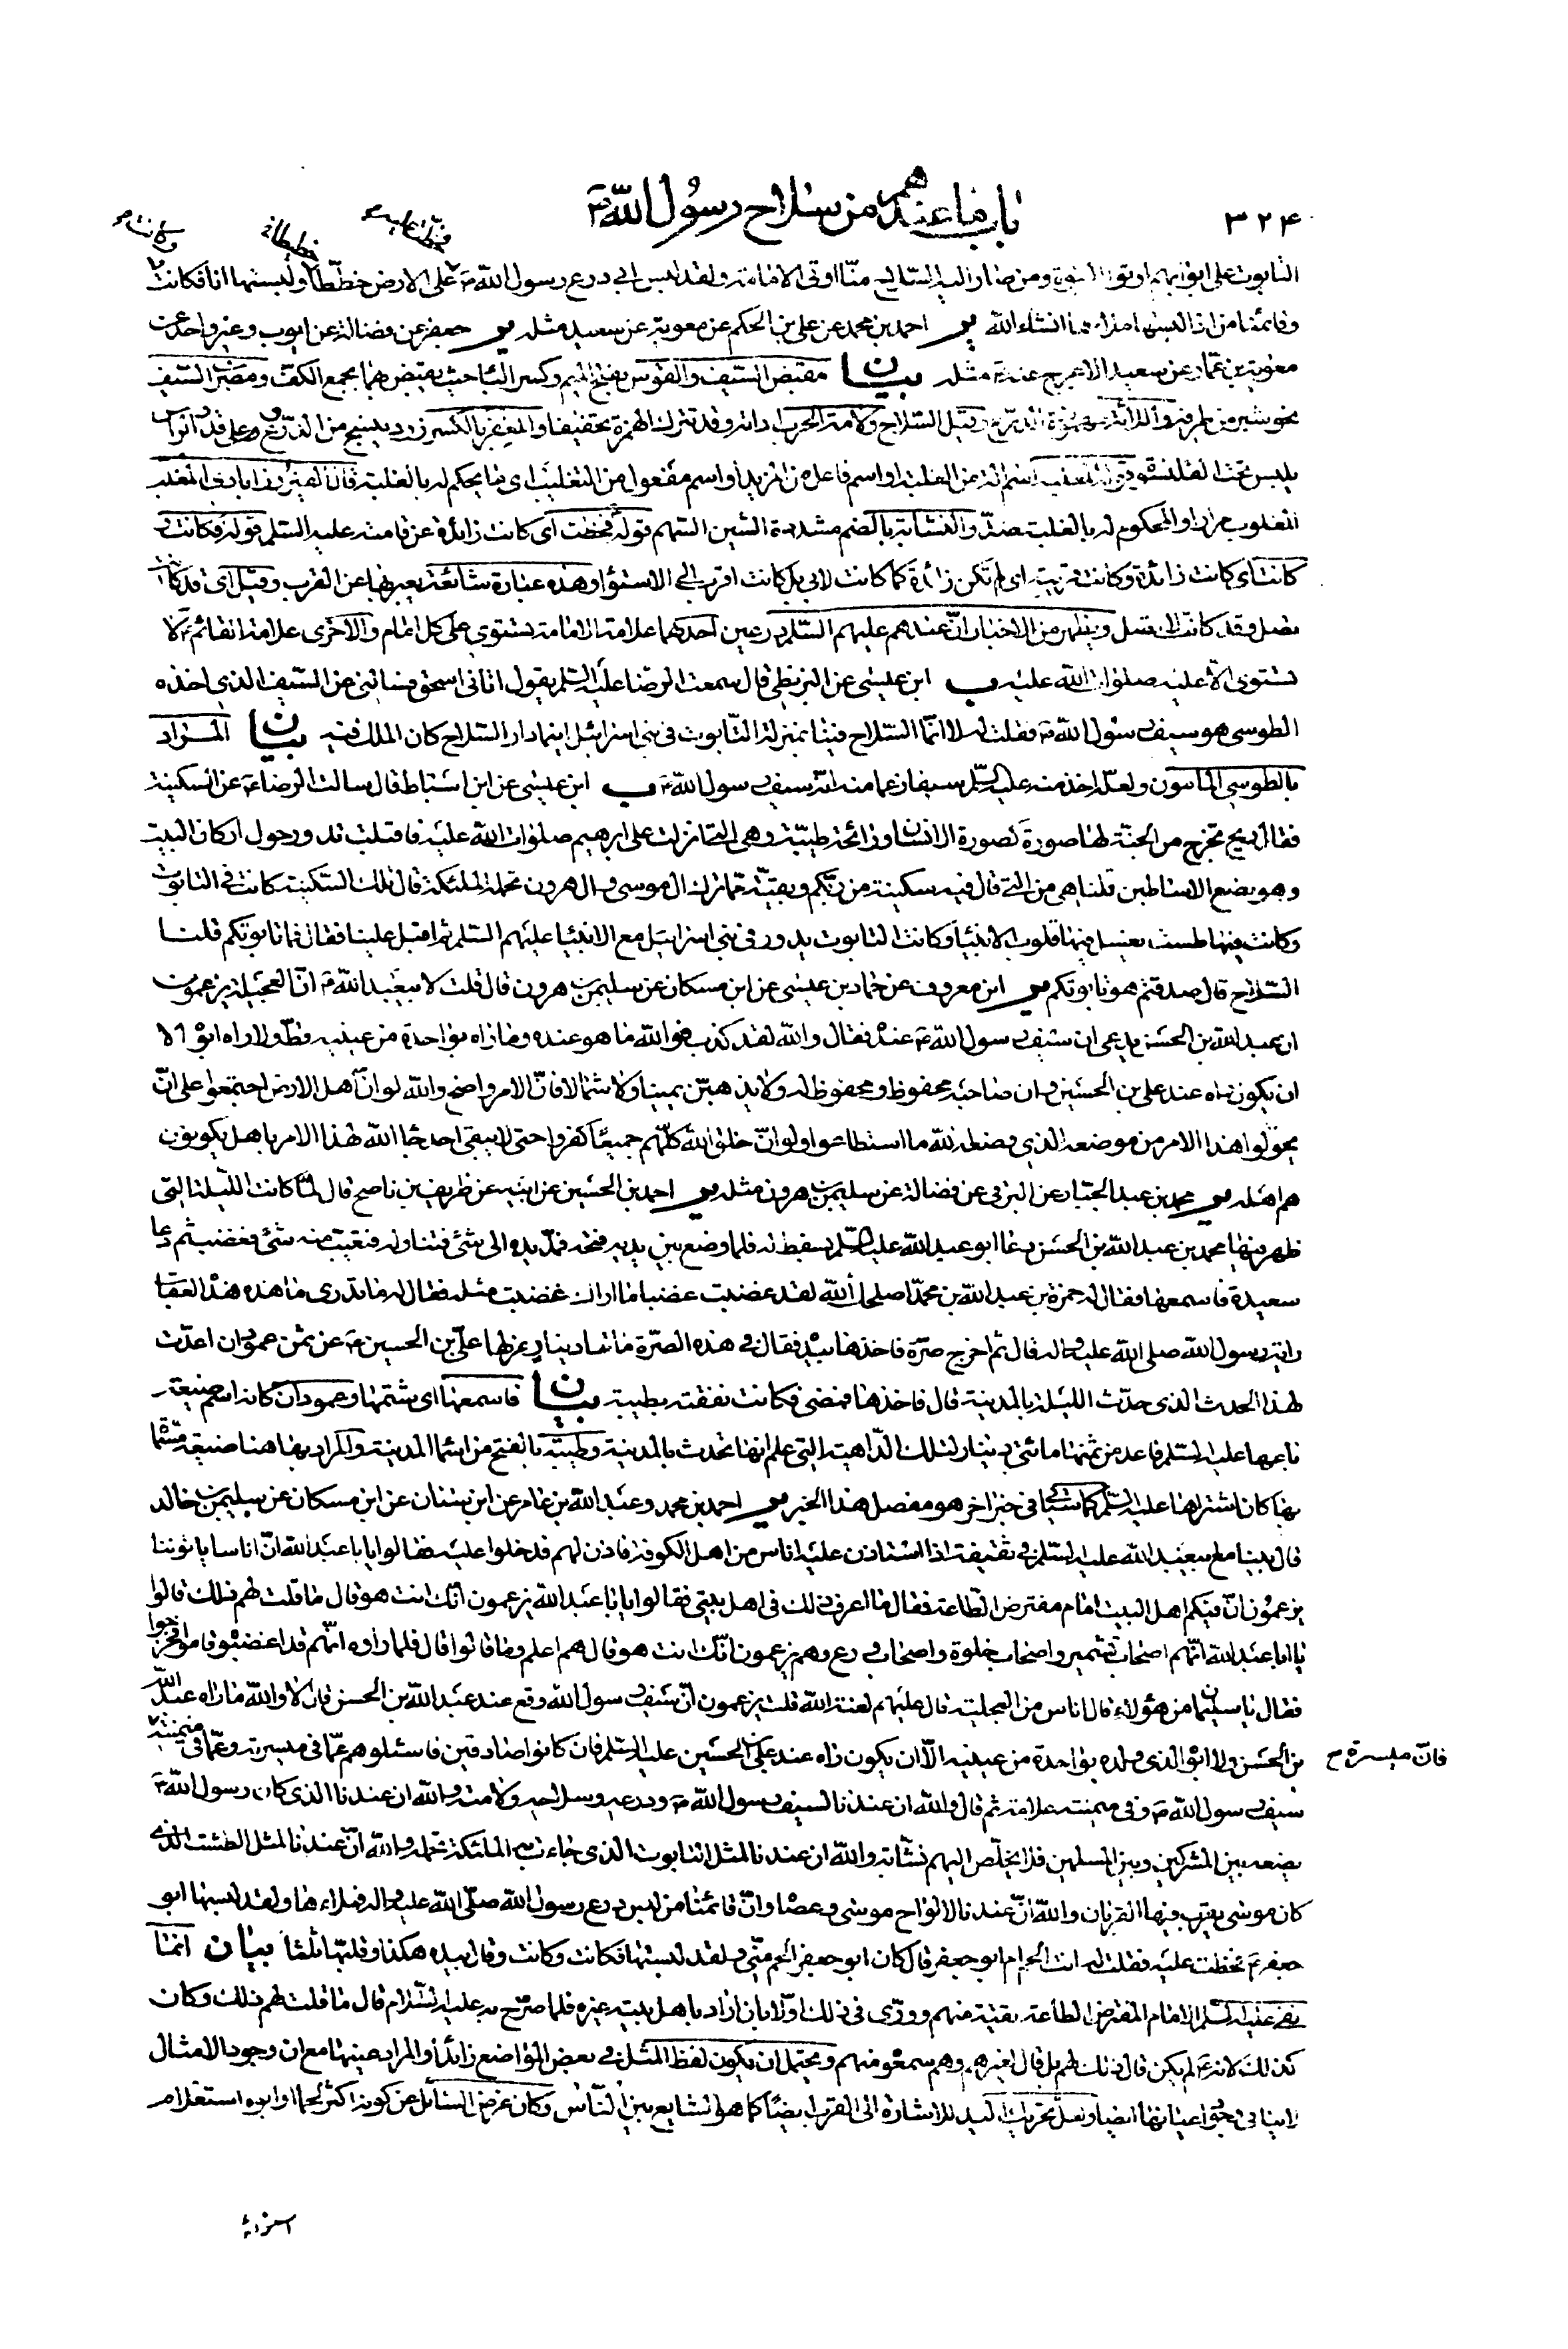 ٣٢۴ باب ما عندهم من سلاح رسول الله ص
فخطت عليه خ خططا خ وكانت خ
التابوت على ابوابهم اوتوا النبوة ومن صار اليه السلاح منّا اوتى الامامة ولقد لبس ابي درع رسول الله ص على الارض خططا ولبستها انا فكانت وكانت
وقائمنا من اذا لبسها ملاءها انشاء الله ير احمد بن محمد عن علي بن الحكم عن معوية عن سعيد مثله ير جعفر عن فضالة عن ايوب وغير واحد عن
معوية بن عمار عن سعيد الاعرج عنه ع مثله بيان مقبض السيف والقوس بفتح الميم وكسر الباء حيث يقبض بهما بجمع الكف ومضرب السيف
نحو شبر من طرفه واللأمة مهموزة الدرع وقيل السلاح ولامة الحرب اداته وقد تترك الهمزة تخفيفا والمغفر بالكسر زرد ينسج من الدروع على قدر الراس
يلبس تحت القلنسوة اسم الة من الغلبة او اسم فاعل من المزيد او اسم مفعول من التغليب اى ما يحكم له بالغلبة قال الفيروزابادى المغلب
المغلوب مرارا والمحكوم له بالغلبة ضدّ والنشابة بالضم مشددة الشين السهم قوله فخطت اى كانت زائدة عن قامته عليه السلم قوله فكانت و
كانت اى كانت زائدة وكانت قريبة اى لم تكن زائدة كما كانت لابي بل كانت اقرب الى الاستواء وهذه عبارة شائعة يعبر بها عن القرب وقيل اى قد كانت
تصل وقد كانت لا تصل ويظهر من الاخبار انّ عندهم عليهم السلم درعين احدهما علامة الامامة تستوى على كل امام والاخرى علامة القائم ع لا
تستوى الا عليه صلوات الله عليه ب ابن عيسى عن البزنطى قال سمعت الرضا عليه السلم يقول اتانى اسحق فسالنى عن السيف الذى اخذه
الطوسى هو سيف رسول الله ص فقلت له لا انما السلاح فينا بمنزلة التابوت فى بنى اسرائيل اينما دار السلاح كان الملك فيه بيان المراد
بالطوسى المامون ولعله اخذ منه عليه السلم سيفا زعما منه انه سيف رسول الله ص ب ابن عيسى عن ابن اسباط قال سالت الرضا ع عن السكينة
فقال ريح تخرج من الجنة لها صورة كصورة الانسان ورائحة طيبة وهى التى نزلت على ابرهيم صلوات الله عليه فاقبلت تدور حول اركان البيت
وهو يضع الاساطين قلنا هى من التى قال فيه سكينة من ربكم وبقية مما ترك ال موسى وال هرون تحمله الملئكة قال تلك السكينة كانت فى التابوت
وكانت فيها طست يغسل فيها قلوب الانبياء وكانت التابوت يدور فى بنى اسرائيل مع الانبياء عليهم السلم ثم اقبل علينا فقال فما تابوتكم قلنا
السلاح قال صدقتم هو تابوتكم ير ابن معروف عن حماد بن عيسى عن ابن مسكان عن سليمن بن هرون قال قلت لابيعبد الله ع انّ العجلية يزعمون
ان عبد الله بن الحسن يدعى ان سيف رسول الله ص عنده فقال والله لقد كذب فوالله ما هو عنده وما راه بواحدة من عينيه قطّ ولا راه ابوه الا
ان يكون راه عند على بن الحسين وان صاحبه محفوظ ومحفوظ له ولا يذهبن يمينا ولا شمالا فانّ الامر واضح والله لو انّ اهل الارض اجتمعوا على انّ
يحولوا هذا الامر من موضعه الذى وضعه الله ما استطاعوا ولو انّ خلق الله كلهم جميعا كفروا حتى لا يبقى احد جاء الله لهذا الامر باهل يكونون
هم اهله ير محمد بن عبد الجبار عن البرقى عن فضالة عن سليمن بن هرون مثله ير احمد بن الحسين عن ابيه عن ظريف بن ناصح قال لما كانت الليلة التى
ظهر فيها محمد بن عبد الله بن الحسن دعا ابو عبد الله عليه السلم بسفط له فلما وضع بين يديه فتحه فمد يده الى شئ فتناوله فتغيب منه شئ فغضب ثم دعا
سعيدة فاسمعها فقال له حمزة بن عبد الله بن محمد اصلحك الله لقد غضبت غضبا ما اراك غضبت مثله فقال له ما تدرى ما هذه هذه العقاب
راية رسول الله صلى الله عليه واله قال ثم اخرج صرّة فاخذها بيده فقال فى هذه الصرة مائتا دينار عزلها علىّ بن الحسين ع عن ثمن عمودان اعدت
لهذا الحدث الذى حدث الليلة بالمدينة قال فاخذها فمضى فكانت نفقته بطيبة بيان فاسمعها اى شتمها وعمودان كانه اسم ضيعة
باعها عليه السلم فاعد من ثمنها مائتى دينار لتلك الداهية التى علم انها تحدث بالمدينة وطيبة بالفتح من اسماء المدينة والمراد بها هنا ضيعة مسماة
بها كان اشتراها عليه السلم كما سياتى فى خبر اخر هو مفصل هذا الخبر ير احمد بن محمد وعبد الله بن عامر عن ابن سنان عن ابن مسكان عن سليمن بن خالد
قال بينا مع ابيعبد الله عليه السلم فى ثقيفة اذا استاذن عليه اناس من اهل الكوفة فاذن لهم فدخلوا عليه فقالوا يابا عبد الله انّ اناسا ياتوننا
يزعمون انّ فيكم اهل البيت امام مفترض الطاعة فقال ما اعرف ذلك فى اهل بيتى فقالوا يابا عبد الله يزعمون انّك انت هو قال ما قلت لهم ذلك قالوا
يا ابا عبد الله انّهم اصحاب تشمير واصحاب خلوة واصحاب ورع وهم يزعمون انّك انت هو قال هم اعلم وما قالوا قال فلما راوه انهم قد اغضبوه قاموا فخرجوا
فقال يا سليمان من هؤلاء قال اناس من العجلية قال عليهم لعنة الله قلت يزعمون انّ سيف رسول الله وقع عند عبد الله بن الحسن قال لا والله ما راه عبد الله
بن الحسن ولا ابوه الذى ولده بواحدة من عينيه الّا ان يكون راه عند على بن الحسين عليه السلم فان كانوا صادقين فاسئلوهم عمّا فى ميسرته وعمّا فى ميمنته
فانّ ميسرة ح
سيف رسول الله ص وفى ميمنته علامة ثم قال والله ان عندنا لسيف رسول الله ص ودرعه وسلاحه ولامته والله ان عندنا الذى كان رسول الله ص
يضعه بين المشركين وبين المسلمين فلا يخلص اليهم نشابة والله ان عندنا لمثل التابوت الذى جاءت به الملئكة تحمله والله انّ عندنا لمثل الطشت الذى
كان موسى يقرب فيها القربان والله انّ عندنا لالواح موسى وعصاه وانّ قائمنا من لبس درع رسول الله صلّى الله عليه واله فملاءها ولقد لبسها ابو
جعفر ع فخطت عليه فقلت له انت الحم ام ابو جعفر قال كان ابو جعفر الحم منّى ولقد لبستها فكانت وكانت وقال بيده هكذا وقلبها ثلثا بيان انما
نفى عليه السلم الامام المفترض الطاعة تقية منهم وورّى فى ذلك اوّلا بان اراد باهل بيته غيره فلما صرّح به عليه السلام قال ما قلت لهم ذلك وكان
كذلك لانه ع لم يكن قال ذلك لهم بل قال لغيرهم وهم سمعوه منهم ويحتمل ان يكون لفظ المثل فى بعض المواضع زائدا والمراد عينها مع ان وجود الامثال
لا ينافى وجود اعيانها ايضا ولعل تحريك اليد للاشارة الى القرب ايضا كما هو الشايع بين الناس وكان غرض السائل عن كونه اكثر لحما او ابوه استعلام